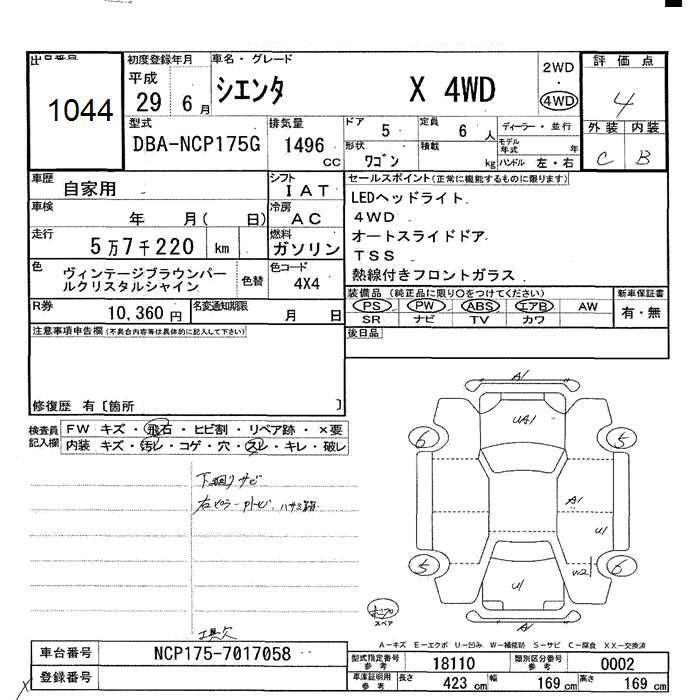 出品番号
1044
初度登録年月
平成
29 6月
車名・グレード
シエンタ X 4WD
2WD
・
4WD
評価点
4
外装 内装
C B
型式
DBA-NCP175G
排気量
1496 cc
ドア 5
定員 6 人
形状 ワゴン
積載 kg
ディーラー・並行
モデル年式 年
ハンドル 左・右
車歴 自家用
シフト IAT
車検 年 月( 日)
冷房 AC
走行 5万7千220 km
燃料 ガソリン
色 ヴィンテージブラウンパールクリスタルシャイン
色替
色コード 4X4
R券 10,360円
名変通知期限 月 日
セールスポイント(正常に機能するものに限ります)
LEDヘッドライト
4WD
オートスライドドア
TSS
熱線付きフロントガラス
装備品(純正品に限り○をつけてください)
PS PW ABS エアB AW
SR ナビ TV カワ
新車保証書
有・無
後日品
注意事項申告欄(不具合内容等は具体的に記入して下さい)
修復歴 有〔箇所 〕
検査員記入欄
FW キズ・飛石・ヒビ割・リペア跡・×要
内装 キズ・汚レ・コゲ・穴・スレ・キレ・破レ
下廻りサビ
工具欠
A1
UA1
6 5
A1
U1
W2
5 6
U1
A1
スペア
A-キズ E-エクボ U-凹み W-補修跡 S-サビ C-腐食 XX-交換済
車台番号 NCP175-7017058
登録番号
型式指定番号 参考 18110
類別区分番号 参考 0002
車庫証明用 参考
長さ 423 cm 幅 169 cm 高さ 169 cm